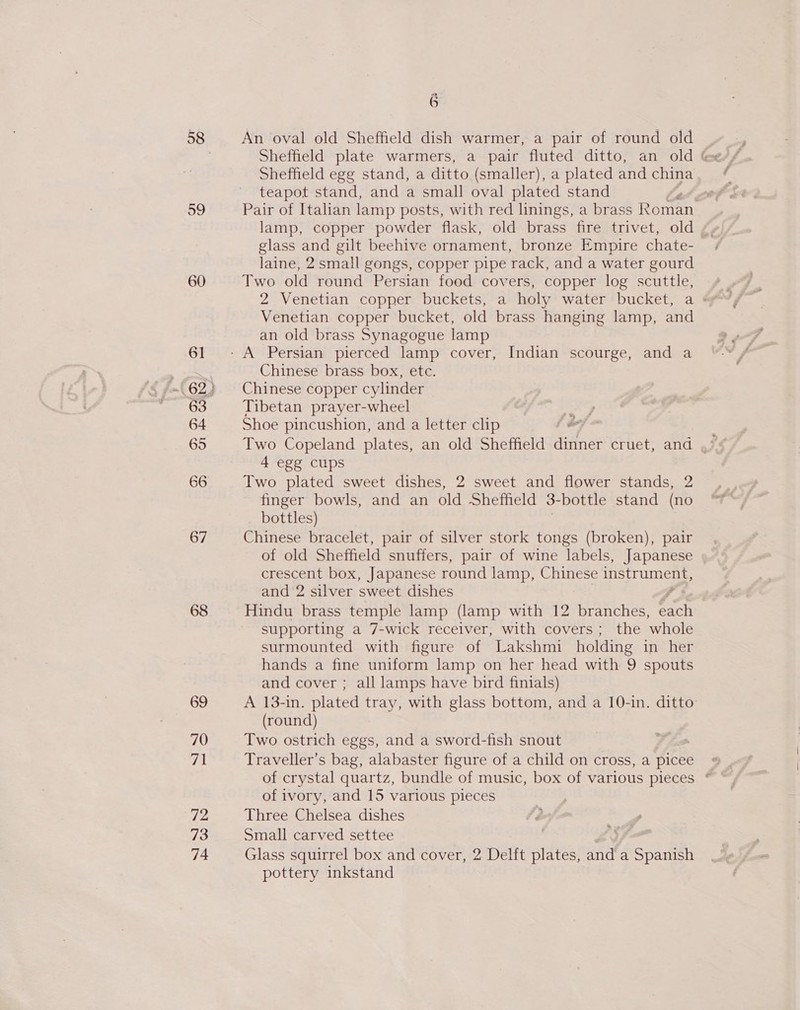 6
58 An oval old Sheffield dish warmer, a pair of round old
Sheffield plate warmers, a pair fluted ditto, an old
Sheffield egg stand, a ditto (smaller), a plated and china
teapot stand, and a small oval plated stand
59 Pair of Italian lamp posts, with red linings, a brass Roman
lamp, copper powder flask, old brass fire trivet, old
glass and gilt beehive ornament, bronze Empire chate-
laine, 2 small gongs, copper pipe rack, and a water gourd
60 Two old round Persian food covers, copper log scuttle,
2 Venetian copper buckets, a holy water bucket, a
Venetian copper bucket, old brass hanging lamp, and
an old brass Synagogue lamp
61 A Persian pierced lamp cover, Indian scourge, and a
Chinese brass box, etc.
62 Chinese copper cylinder
63 Tibetan prayer-wheel
64 Shoe pincushion, and a letter clip
65 Two Copeland plates, an old Sheffield dinner cruet, and
4 egg cups
66 Two plated sweet dishes, 2 sweet and flower stands, 2
finger bowls, and an old Sheffield 3-bottle stand (no
bottles)
67 Chinese bracelet, pair of silver stork tongs (broken), pair
of old Sheffield snuffers, pair of wine labels, Japanese
crescent box, Japanese round lamp, Chinese instrument,
and 2 silver sweet dishes
68 Hindu brass temple lamp (lamp with 12 branches, each
supporting a 7-wick receiver, with covers ; the whole
surmounted with figure of Lakshmi holding in her
hands a fine uniform lamp on her head with 9 spouts
and cover ; all lamps have bird finials)
69 A 13-in. plated tray, with glass bottom, and a 10-in. ditto
(round)
70 Two ostrich eggs, and a sword-fish snout
71 Traveller's bag, alabaster figure of a child on cross, a picee
of crystal quartz, bundle of music, box of various pieces
of ivory, and 15 various pieces
72 Three Chelsea dishes
73 Small carved settee
74 Glass squirrel box and cover, 2 Delft plates, and a Spanish
pottery inkstand